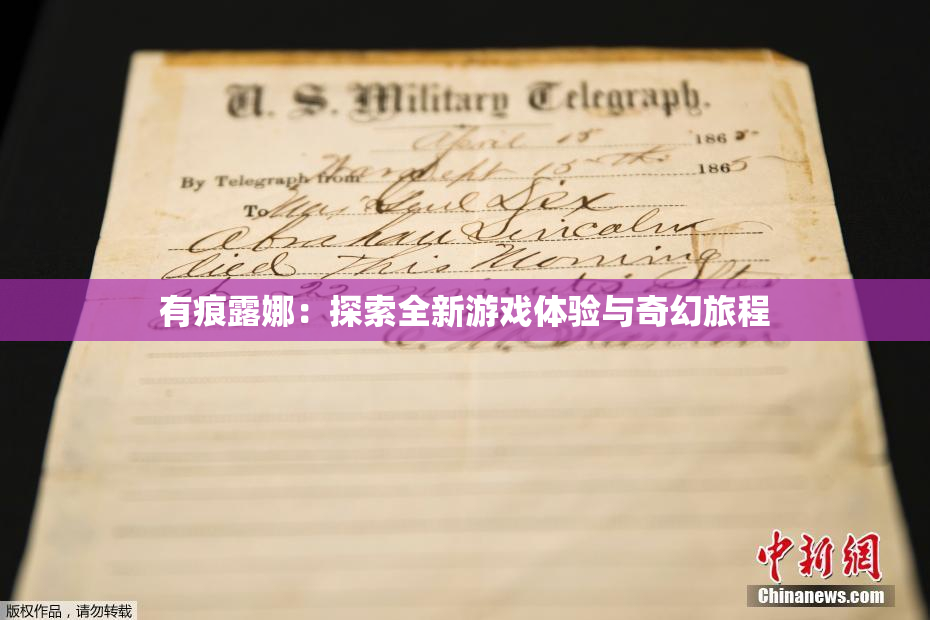 U. S. Military Telegraph.
April 15 1865
By Telegraph from War Dept 15th 1865
To Maj Genl Dix
Abraham Lincoln
died This Morning
22 minutes after
有痕露娜：探索全新游戏体验与奇幻旅程
E. M. Stanton
中新网
Chinanews.com
版权作品，请勿转载